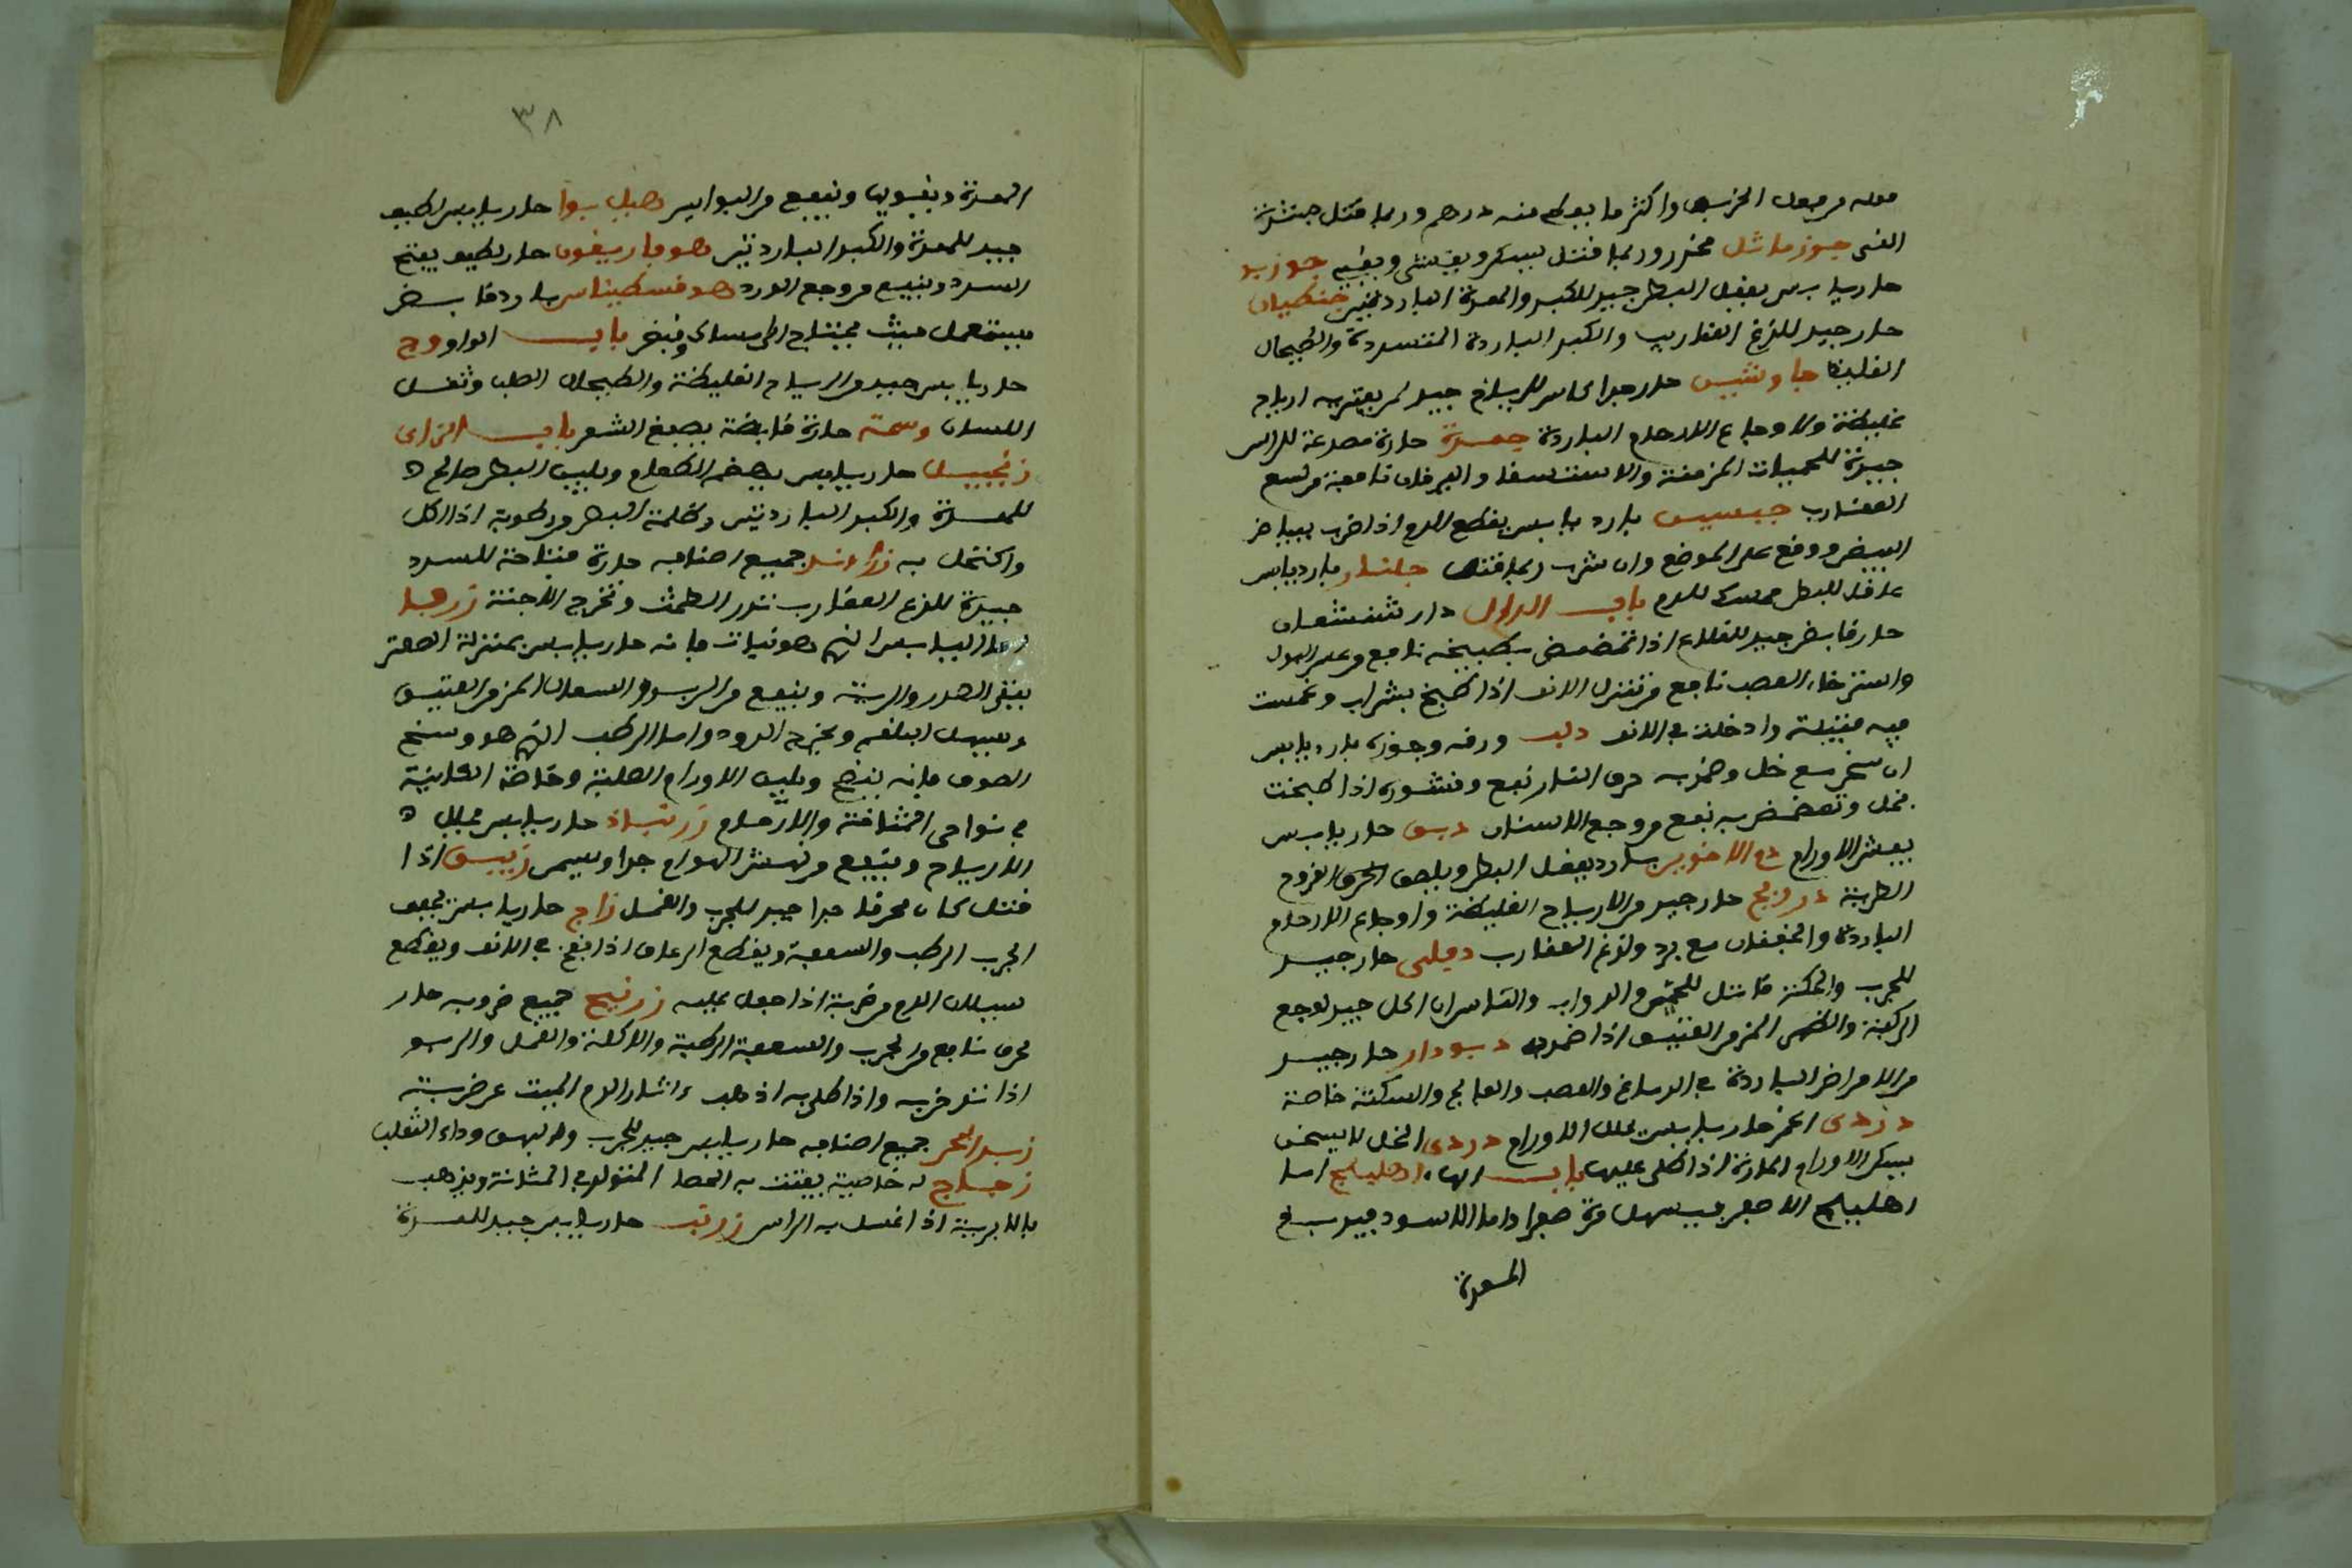 فعله من فعل الخربق واكثر ما يعطى منه درهم وربما قتل جنشدة
القى جوز ماثل مخدر وربما قتل يسكر ويغشى ويقيئ جوز بو
حار يابس يعقل البطن جيد للكبد والمعدة الباردتين جنطيانا
حار جيد للذع العقارب والكبد الباردة المتسددة والطحال
الغليظ جاوشير حار جدا كاسر للرياح جيد لمن يعتريه ارياح
غليظة ولاوجاع الارحام الباردة جعدة حارة مصدعة للراس
جيدة للحميات المزمنة والاستسقا واليرقان نافعة من لسع
العقارب جبسين بارد يابس يقطع الدم اذا ضرب ببياض
البيض ووضع على الموضع وان شرب ربما قتل جلنار بارد يابس
عاقل للبطن ممسك للدم باب الدال دار شيشعان
حار قابض جيد للقلاع اذا تمضمض بطبيخه نافع من عسر البول
واسترخاء العصب نافع من نتن الانف اذا طبخ بشراب وغمست
فيه فتيلة وادخلت في الانف دلب ورقه وجوزه بارد يابس
ان سحق مع خل وضمد به حرق النار نفع وقشوره اذا طبخت
بخل وتمضمض به نفع من وجع الاسنان دبق حار يابس
يفش الاورام دم الاخوين بارد يعقل البطن ويلصق الجراح القروح
الطرية درونج حار جيد من الارياح الغليظة واوجاع الارحام
الباردة والخفقان مع برد ولذع العقارب دفلى حار جيد
للجرب والحكة قاتل للحمير والدواب والناس ان اكل جيد لوجع
الركبة والظهر المزمن العتيق اذا ضمد به ديودار حار جيد
من الامراض الباردة في الدماغ والعصب والفالج والسكتة خاصة
دردى الخمر حار يابس يحلل الاورام دردى الخل لا يسخن
يسكن الاورام الحارة اذا طلى عليها باب الهاء اهليلج اما
اهليلج الاصفر فيسهل مرة صفرا واما الاسود فيدبغ
المعدة
٣٨
المعدة ويقويها وينفع من البواسير هيل بوا حار يابس لطيف
جيد للمعدة والكبد الباردتين هوفاريقون حار لطيف يفتح
السدد وينفع من وجع الورك هوفسطيداس بارد قابض
يستعمل حيث يحتاج الى امساك وقبض باب الواو وج
حار يابس جيد من الرياح الغليظة والطحال الصلب وثقل
اللسان وسمة حارة قابضة يصبغ الشعر باب الزاى
زنجبيل حار يابس يهضم الطعام ويلين البطن صالح
للمعدة والكبد الباردتين وظلمة البصر من رطوبة اذا اكل
واكتحل به زراوند جميع اصنافه حارة فتاحة للسدد
جيدة للذع العقارب تدر الطمث وتخرج الاجنة زوفا
اما اليابس الذي هو نبات فانه حار يابس بمنزلة الصعتر
ينقى الصدر والرية وينفع من الربو والسعال المزمن العتيق
ويسهل البلغم ويخرج الدود واما الرطب الذي هو وسخ
الصوف فانه ينضج ويلين الاورام الصلبة وخاصة الكاينة
في نواحى المثانة والارحام زرنباد حار يابس محلل
الارياح وينفع من نهش الهوام جدا ويسمن زيبق اذا
قتل كان محرقا جدا جيد للجرب والقمل زاج حار يابس يجفف
الجرب الرطب والسعفة ويقطع الرعاف اذا نفخ في الانف ويقطع
سيلان الدم من ضربة اذا جعل عليه زرنيخ جميع ضروبه حار
محرق نافع من الجرب والسعفة الرطبة والاكلة والقمل والربو
اذا تدخن به واذا طلى به اذهب اثار الدم الميت عن ضربة
زبد البحر جميع اصنافه حار يابس جيد للجرب والبهق وداء الثعلب
زجاج له خاصية يفتت به الحصا المتولد في المثانة ويذهب
بالابرية اذا غسل به الراس زرنب حار يابس جيد للمعدة